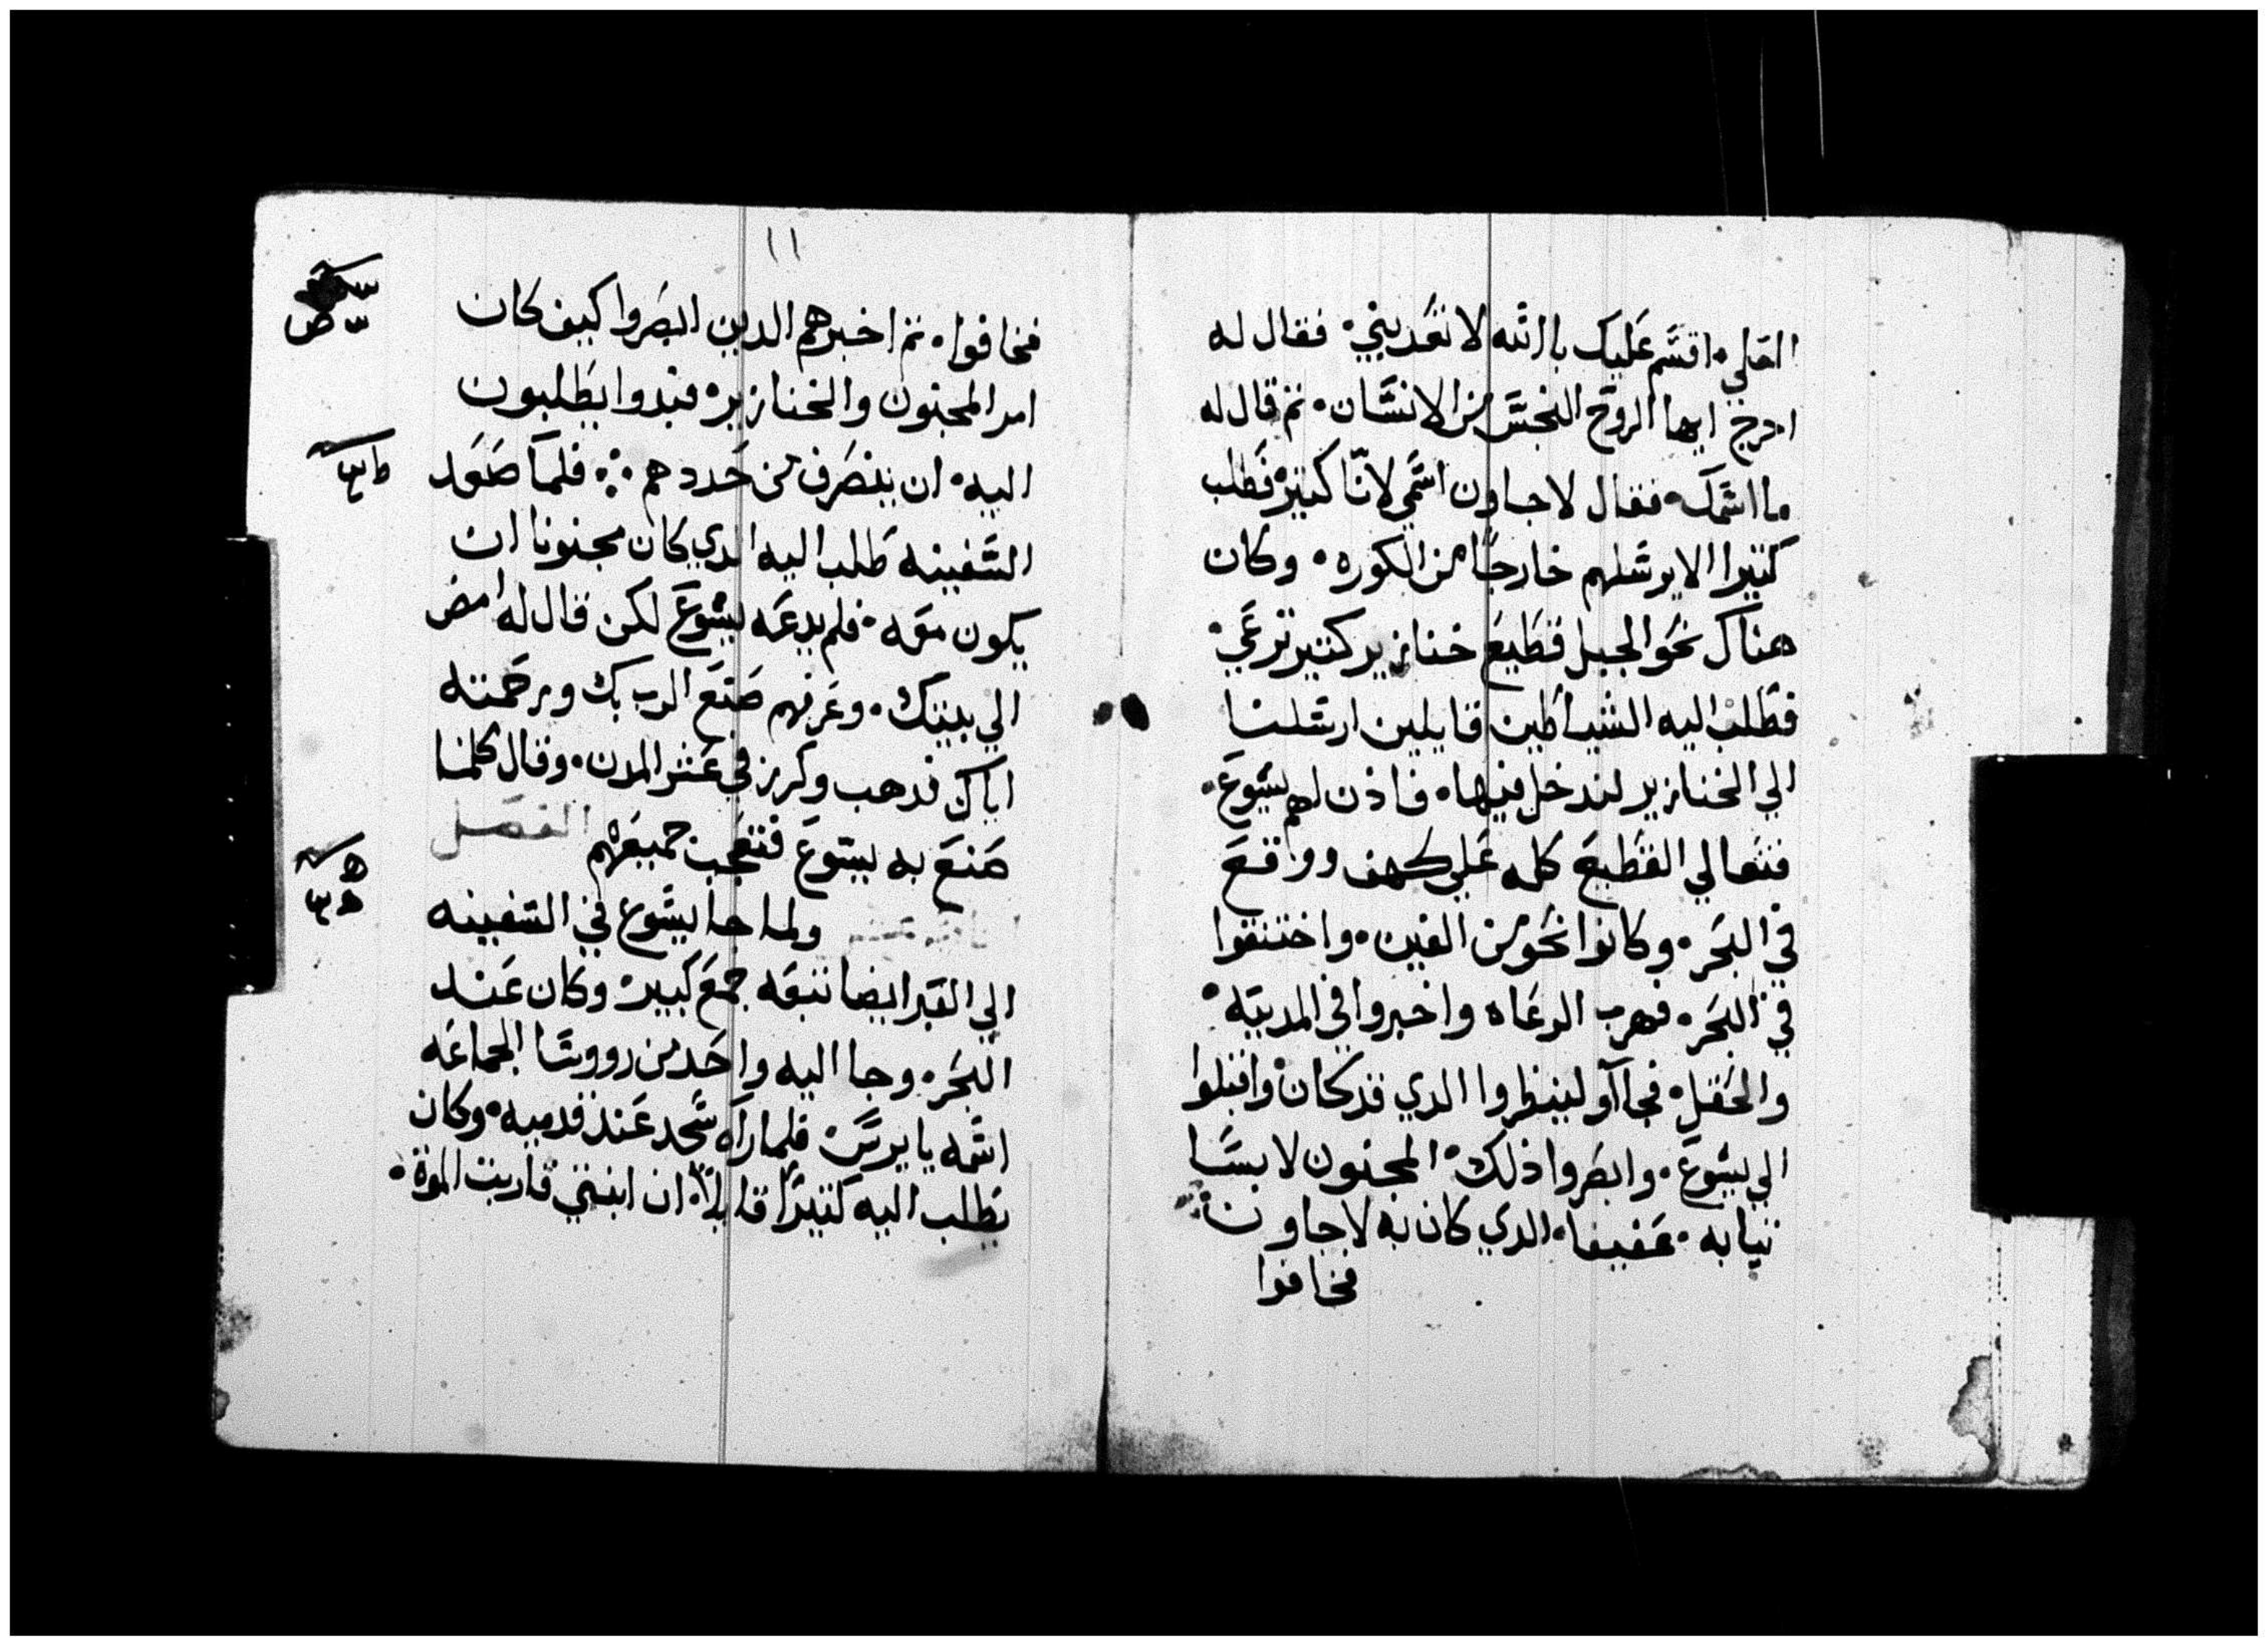 العلي • اقسم عليك بالله لا تعدبني • فقال له
اخرج ايها الروح النجس من الانسان • ثم قال له
ما اسمك • فقال لاجاون اسمي لانّا كثير • فطلب
كثيرا الا يرسلهم خارجًا من الكوره • وكان
هناك نحو الجبل قطيع خنازير كثير ترعي •
فطلب اليه الشياطين قايلين ارسلنا
الي الخنازير لندخل فيها • فاذن لهم يسوع •
فتعالي القطيع كله علي كهف ووقع
في البحر • وكانوا نحو من الفين • واختنقوا
في البحر • فهرب الرعاه واخبروا في المدينه •
والحقل • فجاآو لينظروا الدي قد كان • واقبلوا
الي يسوع • وابصروا ذلك • المجنون لابسًا
ثيابه • عفيفا • الدي كان به لاجاون •
فخافوا
١١
فخافوا • ثم اخبرهم الدين ابصروا كيف كان
امر المجنون والخنازير • فبدوا يطلبون
اليه • ان ينصرف من حددهم ••• فلما صعد
السفينه طلب اليه الدي كان مجنونا ان
يكون معه • فلم يدعه يسوع لكن قال له امض
الي بيتك • وعرفهم صنع الرب بك ورحمته
اياك فدهب وكرز في عشر المدن • وقال كلما
صنع به يسوع فتعجب جميعهم الفصل
ولما جا يسوع في السفينه
الي العبر ايضا تبعه جمع كبير • وكان عند
البحر • وجا اليه واحد من رووسا الجماعه
اسمه يايرس • فلما راه سجد عند قدميه • وكان
يطلب اليه كثيرًا قايلًا • ان ابنتي قاربت الموت •